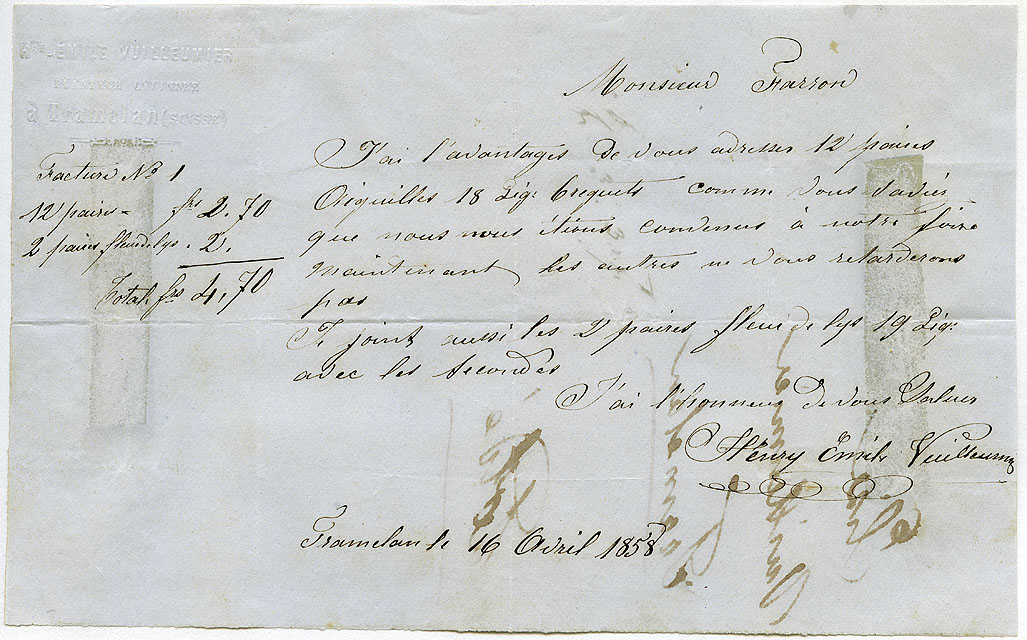 Hri EMILE VUILLEUMIER
à Tramelan (SUISSE)
Monsieur Farron
Facture No 1
12 paires - frs 2.70
2 paires fleudelys. 2.
Total frs 4,70
J'ai l'avantages de vous adresser 12 paires
Aiguilles 18 Lig: Breguets comme vous savier
que nous nous étions convenus à notre foire
maintenant les autres ne vous retarderons
pas
Je joint aussi les 2 paires fleur de lys 19 Lig:
avec les secondes
J'ai l'honneur de vous Saluer
Hénry Emile Vuilleumier
Tramelan le 16 Avril 1858